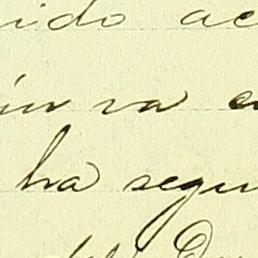 ido ac
in va e
ha segu